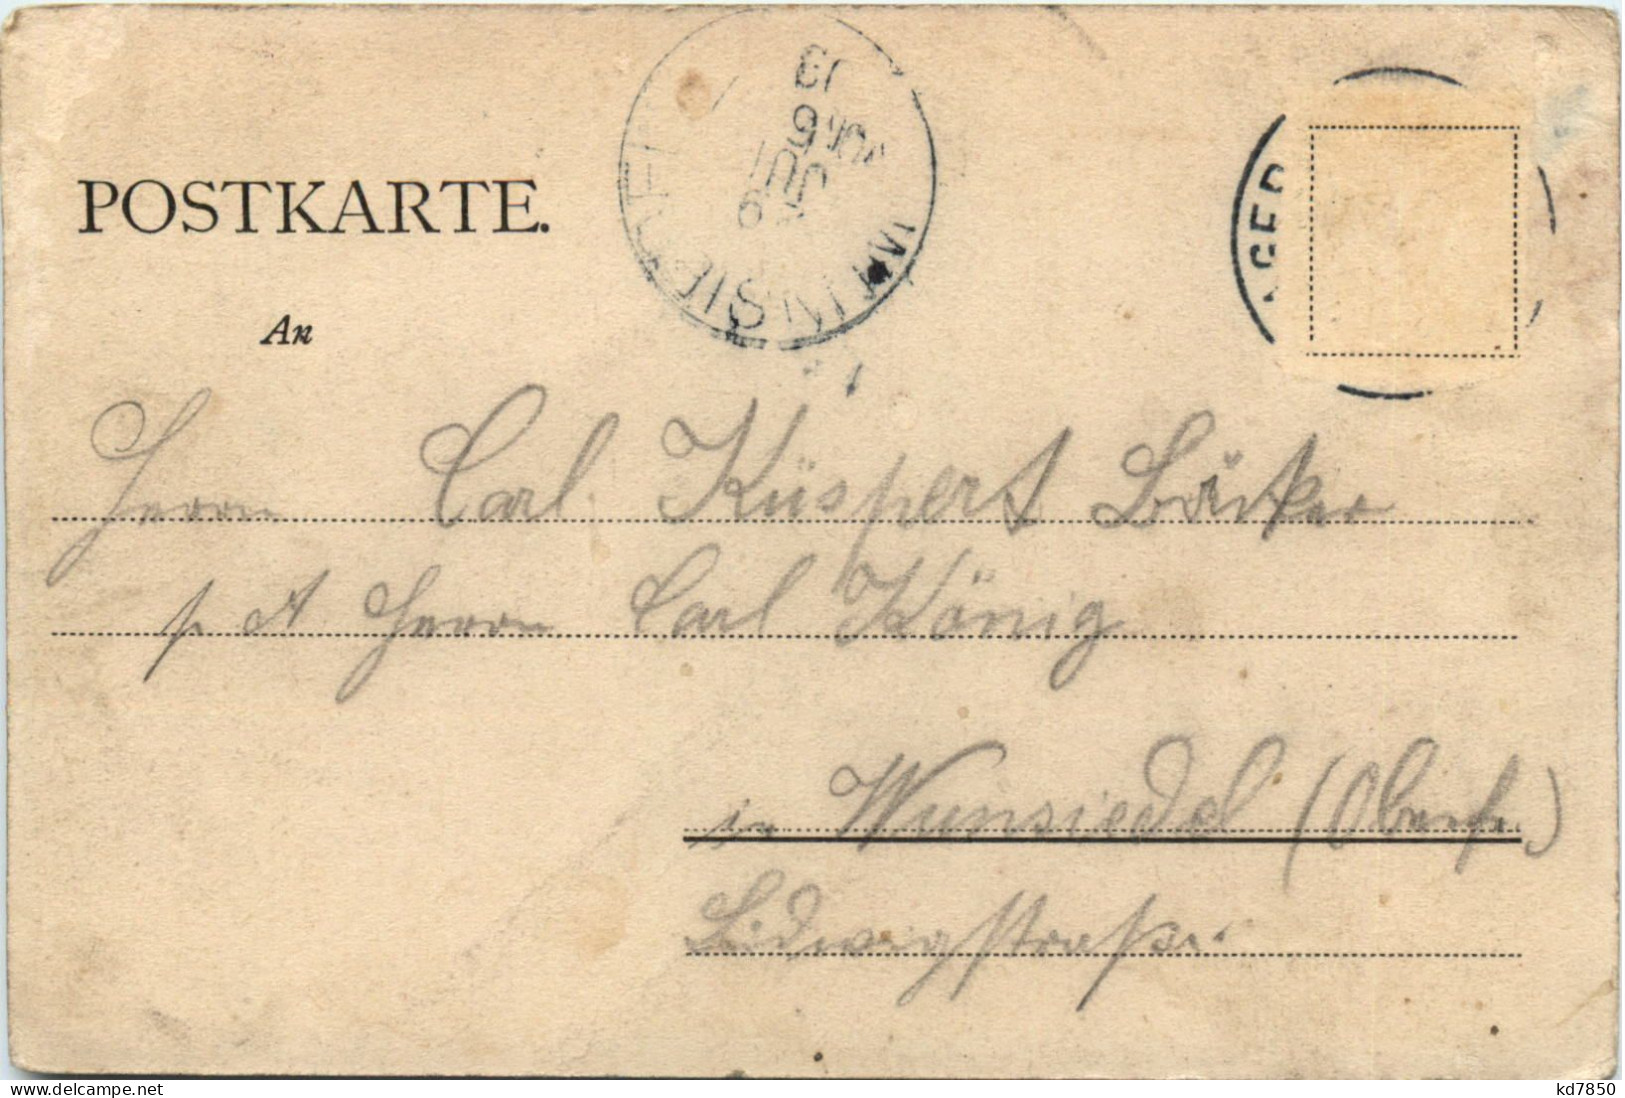 POSTKARTE.
WUNSIEDEL
9 JUL
13
GER
An
Herrn Carl Küspert Bäcker
p A Herrn Carl König
in Wunsiedel (Oberfr.)
Ludwigstraße.
www.delcampe.net
kd7850